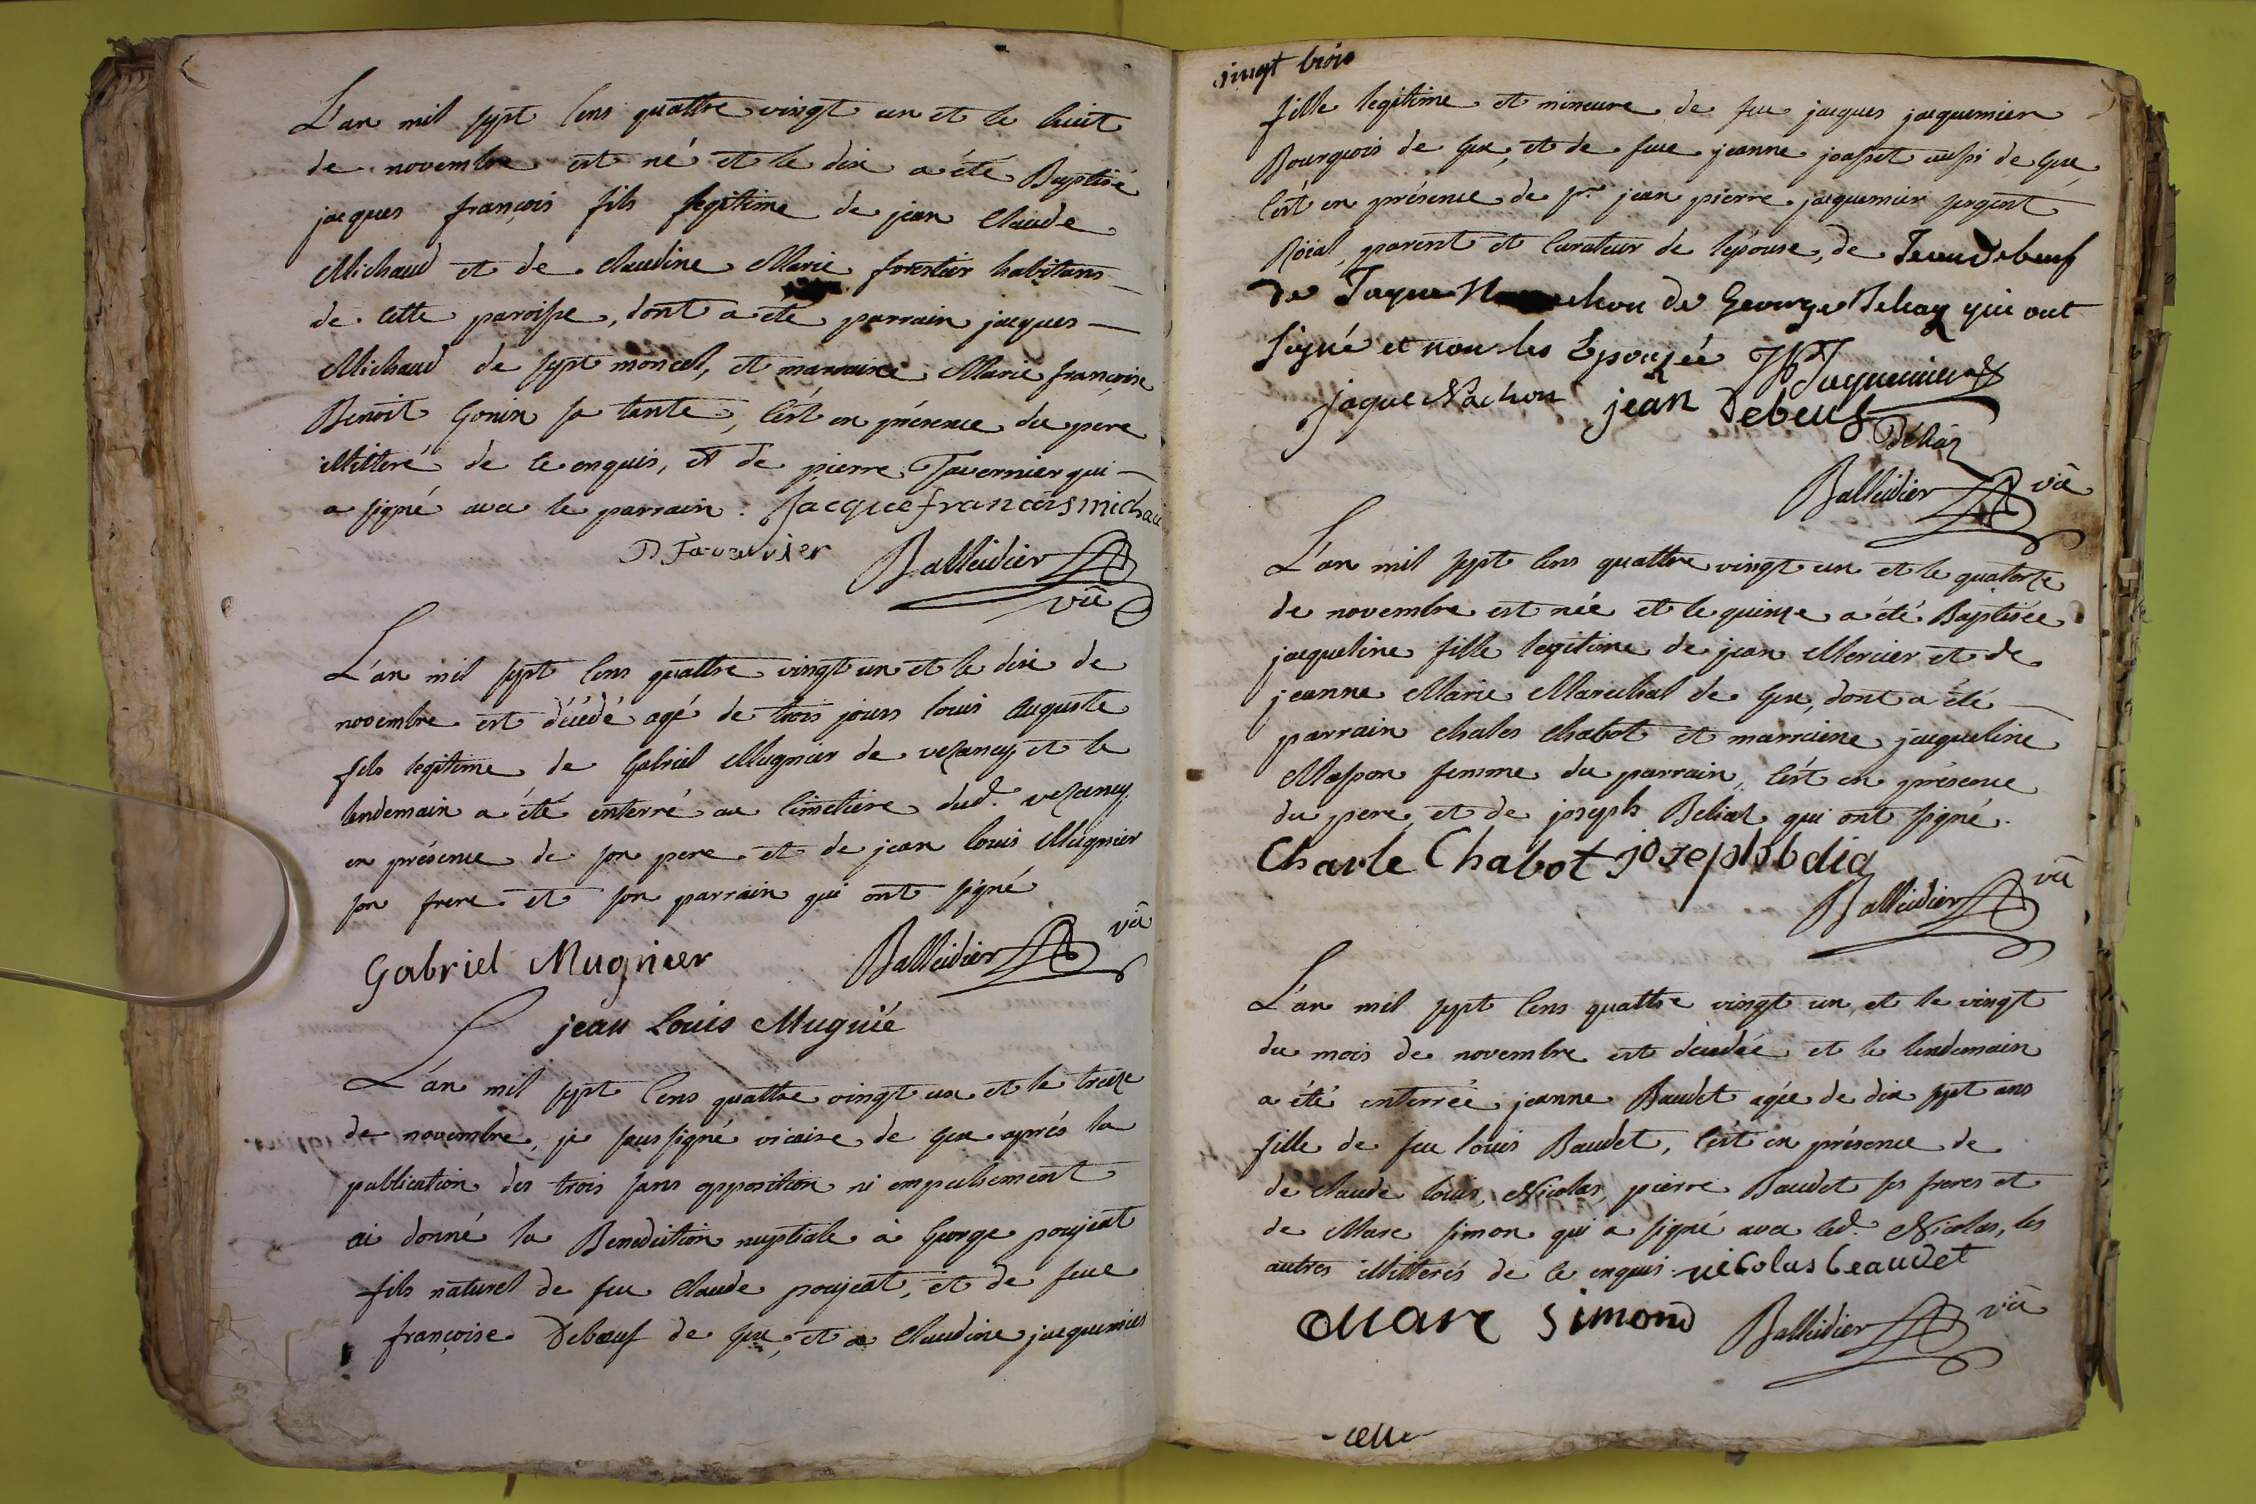 L'an mil sept cens quattre vingt un et le huit
de novembre est né et le dix a été Baptisé
jacques françois fils legitime de jean Claude
Michaud et de Claudine Marie forestier habitans
de cette paroisse, dont a été parrain jacques
Michaud de sept moncel, et marraine Marie françoise
Benoit Gonin sa tante, c'est en présence du pere
illitteré de ce enquis, et de pierre Tavernier qui
a signé avec le parrain. Jacque francois michau
P. Tavernier Balleidier vic
L'an mil sept cens quattre vingt un et le dix de
novembre est décédé agé de trois jours louis Auguste
fils legitime de Gabriel Mugnier de vezancy et le
lendemain a été enterré au Cimetiere dud. vezancy
en présence de son pere et de jean louis Mugnier
son frere et son parrain qui ont signé
Gabriel Mugnier Balleidier vic
jean Louis Mugnié
L'an mil sept cens quattre vingt un et le treize
de novembre, je soussigné vicaire de Gex après la
publication des trois sans opposition ni empechement
ai donné la Benediction nuptiale à George poujeat
fils naturel de feu Claude poujeat, et de feue
françoise Debœuf de Gex, et a Claudine jacquemier
vingt trois
fille legitime et mineure de feu jacques jacquemier
Bourgeois de Gex, et de feue jeanne josset aussi de Gex,
c'est en présence de sr jean pierre jacquemier sergent
Roïal, parent et Curateur de lepouse, de Jean Debeuf
de Jaque Nachon de George Deliaz qui ont
signé et non les Epousée JP Jaquemier
jaque Nachon jean Debeuf
Déliaz
Balleidier vic
L'an mil sept cens quattre vingt un et le quatorze
de novembre est née et le quinze a été Baptisée
jacqueline fille legitime de jean Mercier et de
jeanne Marie Marechal de Gex, dont a été
parrain Chales Chabot et marraine jacqueline
Masson femme du parrain, c'est en présence
du pere, et de joseph Beliat qui ont signé.
Charle Chabot joseph bdia
Balleidier vic
L'an mil sept cens quattre vingt un, et le vingt
du mois de novembre est decedée et le lendemain
a été enterrée jeanne Baudet agée de dix sept ans
fille de feu louis Baudet, c'est en présence de
de Claude louis, Nicolas, pierre Baudet ses freres et
de Marc simon qui a signé avec led. Nicolas, les
autres illitterés de ce enquis. nicolas beaudet
Marc Simond Balleidier vic
-celle-